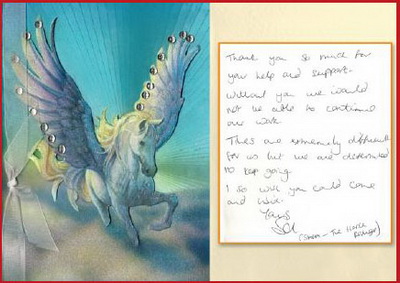 Thank you so much for
your help and support.
Without you we would
not be able to continue
our work.
Times are extremely difficult
for us but we are determined
to keep going.
I so wish you could come
and
Yours
(The Horse
Refuge)